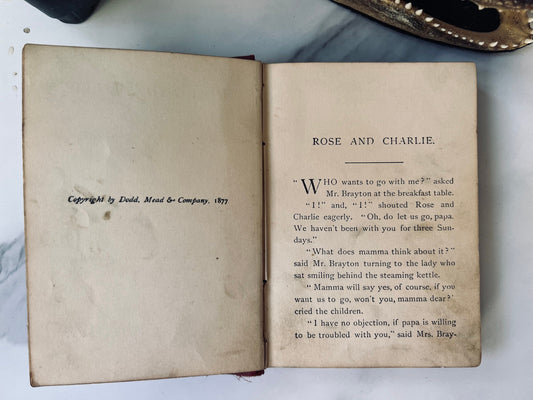 Copyright by Dodd, Mead & Company, 1877
ROSE AND CHARLIE.
"WHO wants to go with me?" asked
Mr. Brayton at the breakfast table.
"I!" and, "I!" shouted Rose and
Charlie eagerly. "Oh, do let us go, papa.
We haven't been with you for three Sun-
days."
"What does mamma think about it?"
said Mr. Brayton turning to the lady who
sat smiling behind the steaming kettle.
"Mamma will say yes, of course, if you
want us to go, won't you, mamma dear?'
cried the children.
"I have no objection, if papa is willing
to be troubled with you," said Mrs. Bray-